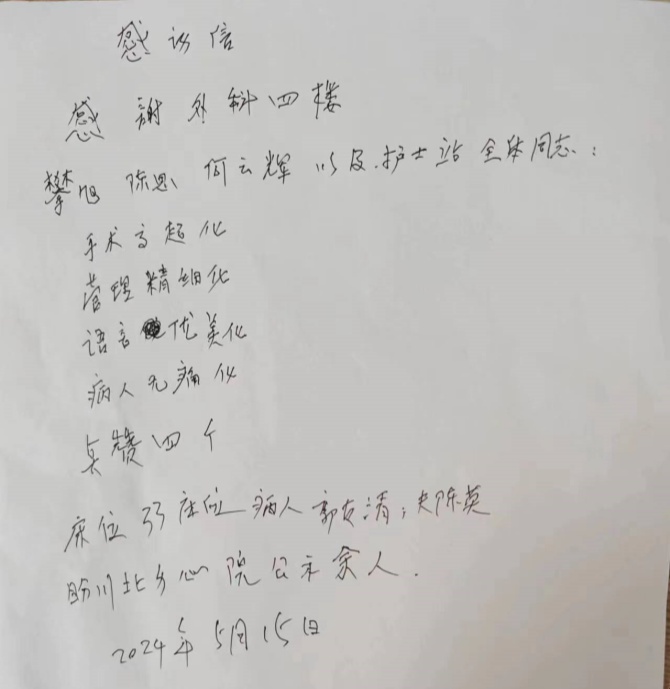 感谢信
感谢外科四楼
樊旭 陈思 何云辉 以及护士站全体同志:
手术高超化
管理精细化
语言优美化
病人无痛化
点赞四个
床位33床位病人郭友清,夫陈英
盼川北乡心院公示余人.
2024年5月15日